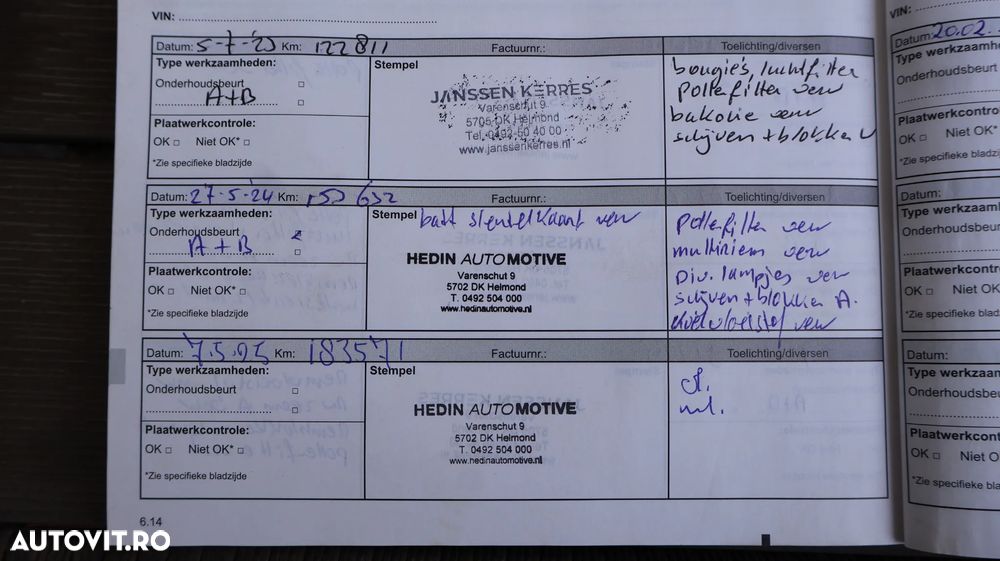 VIN:
Datum: 5-7-23 Km: 122811 Factuurnr.: Toelichting/diversen
Type werkzaamheden:
Onderhoudsbeurt
A+B
Plaatwerkcontrole:
OK □ Niet OK* □
*Zie specifieke bladzijde
Stempel
JANSSEN KERRES
Varenschut 9
5705 DK Helmond
Tel. 0492-50 40 00
www.janssenkerres.nl
bougie's, luchtfilter
Pollenfilter verv
schijven + blokken V
Datum: 27-5-24 Km: 153632 Factuurnr.: Toelichting/diversen
Type werkzaamheden:
Onderhoudsbeurt
A + B
Plaatwerkcontrole:
OK □ Niet OK* □
*Zie specifieke bladzijde
Stempel batt sleutelkaart verv
HEDIN AUTOMOTIVE
Varenschut 9
5702 DK Helmond
T. 0492 504 000
www.hedinautomotive.nl
Pollenfilter verv
multiriem verv
Div. lampjes verv
schijven + blokken A.
koelvloeistof verv
Datum: 7.5.25 Km: 183571 Factuurnr.: Toelichting/diversen
Type werkzaamheden:
Onderhoudsbeurt
Plaatwerkcontrole:
OK □ Niet OK* □
*Zie specifieke bladzijde
Stempel
HEDIN AUTOMOTIVE
Varenschut 9
5702 DK Helmond
T. 0492 504 000
www.hedinautomotive.nl
6.14
VIN:
Datum: 20.02.
Type werkzaamhe
Onderhoudsbeurt
Plaatwerkcontro
OK □ Niet OK
*Zie specifieke bla
Datum:
Type werkzaamh
Onderhoudsbeur
Plaatwerkcontro
OK □ Niet OK
*Zie specifieke bla
Datum:
Type werkzaam
Onderhoudsbeu
Plaatwerkcont
OK □ Niet O
*Zie specifieke bla
AUTOVIT.RO